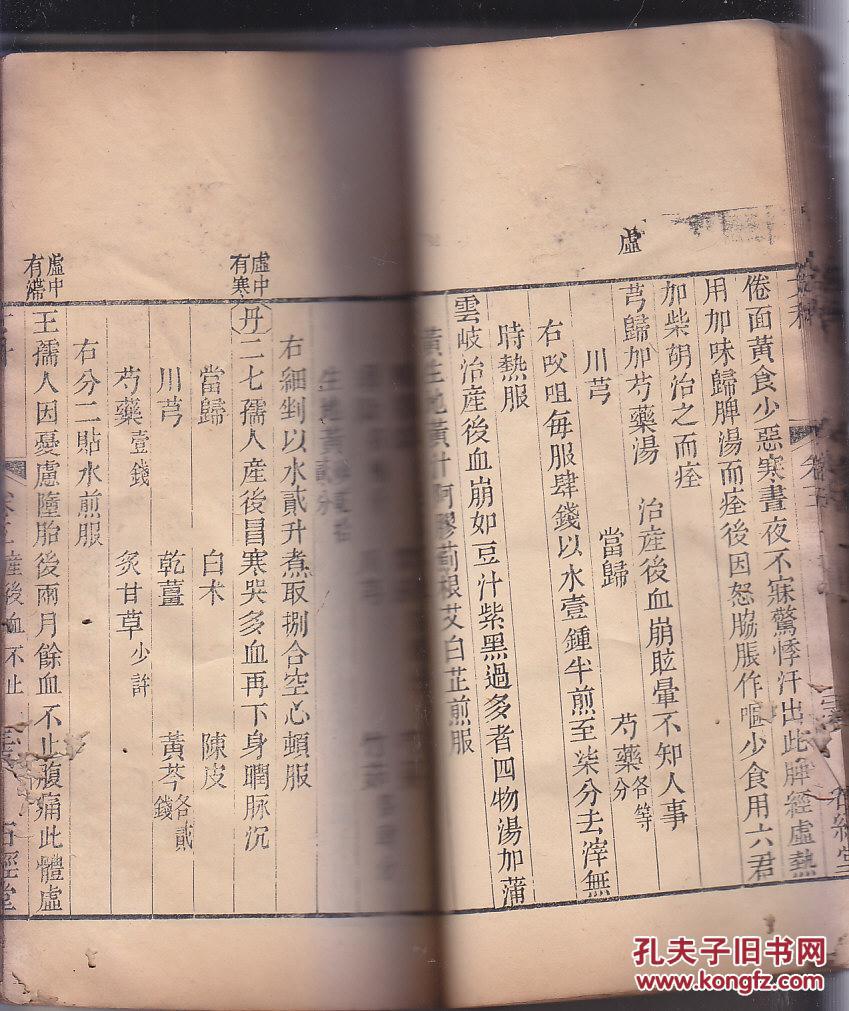 虛
倦面黃食少惡寒晝夜不寐驚悸汗出此脾經虛熱
用加味歸脾湯而痊後因怒脇脹作嘔少食用六君
加柴胡治之而痊
芎歸加芍藥湯 治產後血崩眩暈不知人事
川芎 當歸 芍藥各等分
右㕮咀每服肆錢以水壹鍾半煎至柒分去滓無
時熱服
雲岐治產後血崩如豆汁紫黑過多者四物湯加蒲
黃生地黃汁阿膠薊根艾白芷煎服
生地黃
右細剉以水貳升煮取捌合空心頓服
虛中有寒
丹二七孺人產後冒寒哭多血再下身潤脉沉
當歸 白朮 陳皮
川芎 乾薑 黃芩各貳錢
芍藥壹錢 炙甘草少許
右分二貼水煎服
虛中有滯
王孺人因憂慮墮胎後兩月餘血不止腹痛此體虛
產後血不止
石經堂
孔夫子旧书网
www.kongfz.com